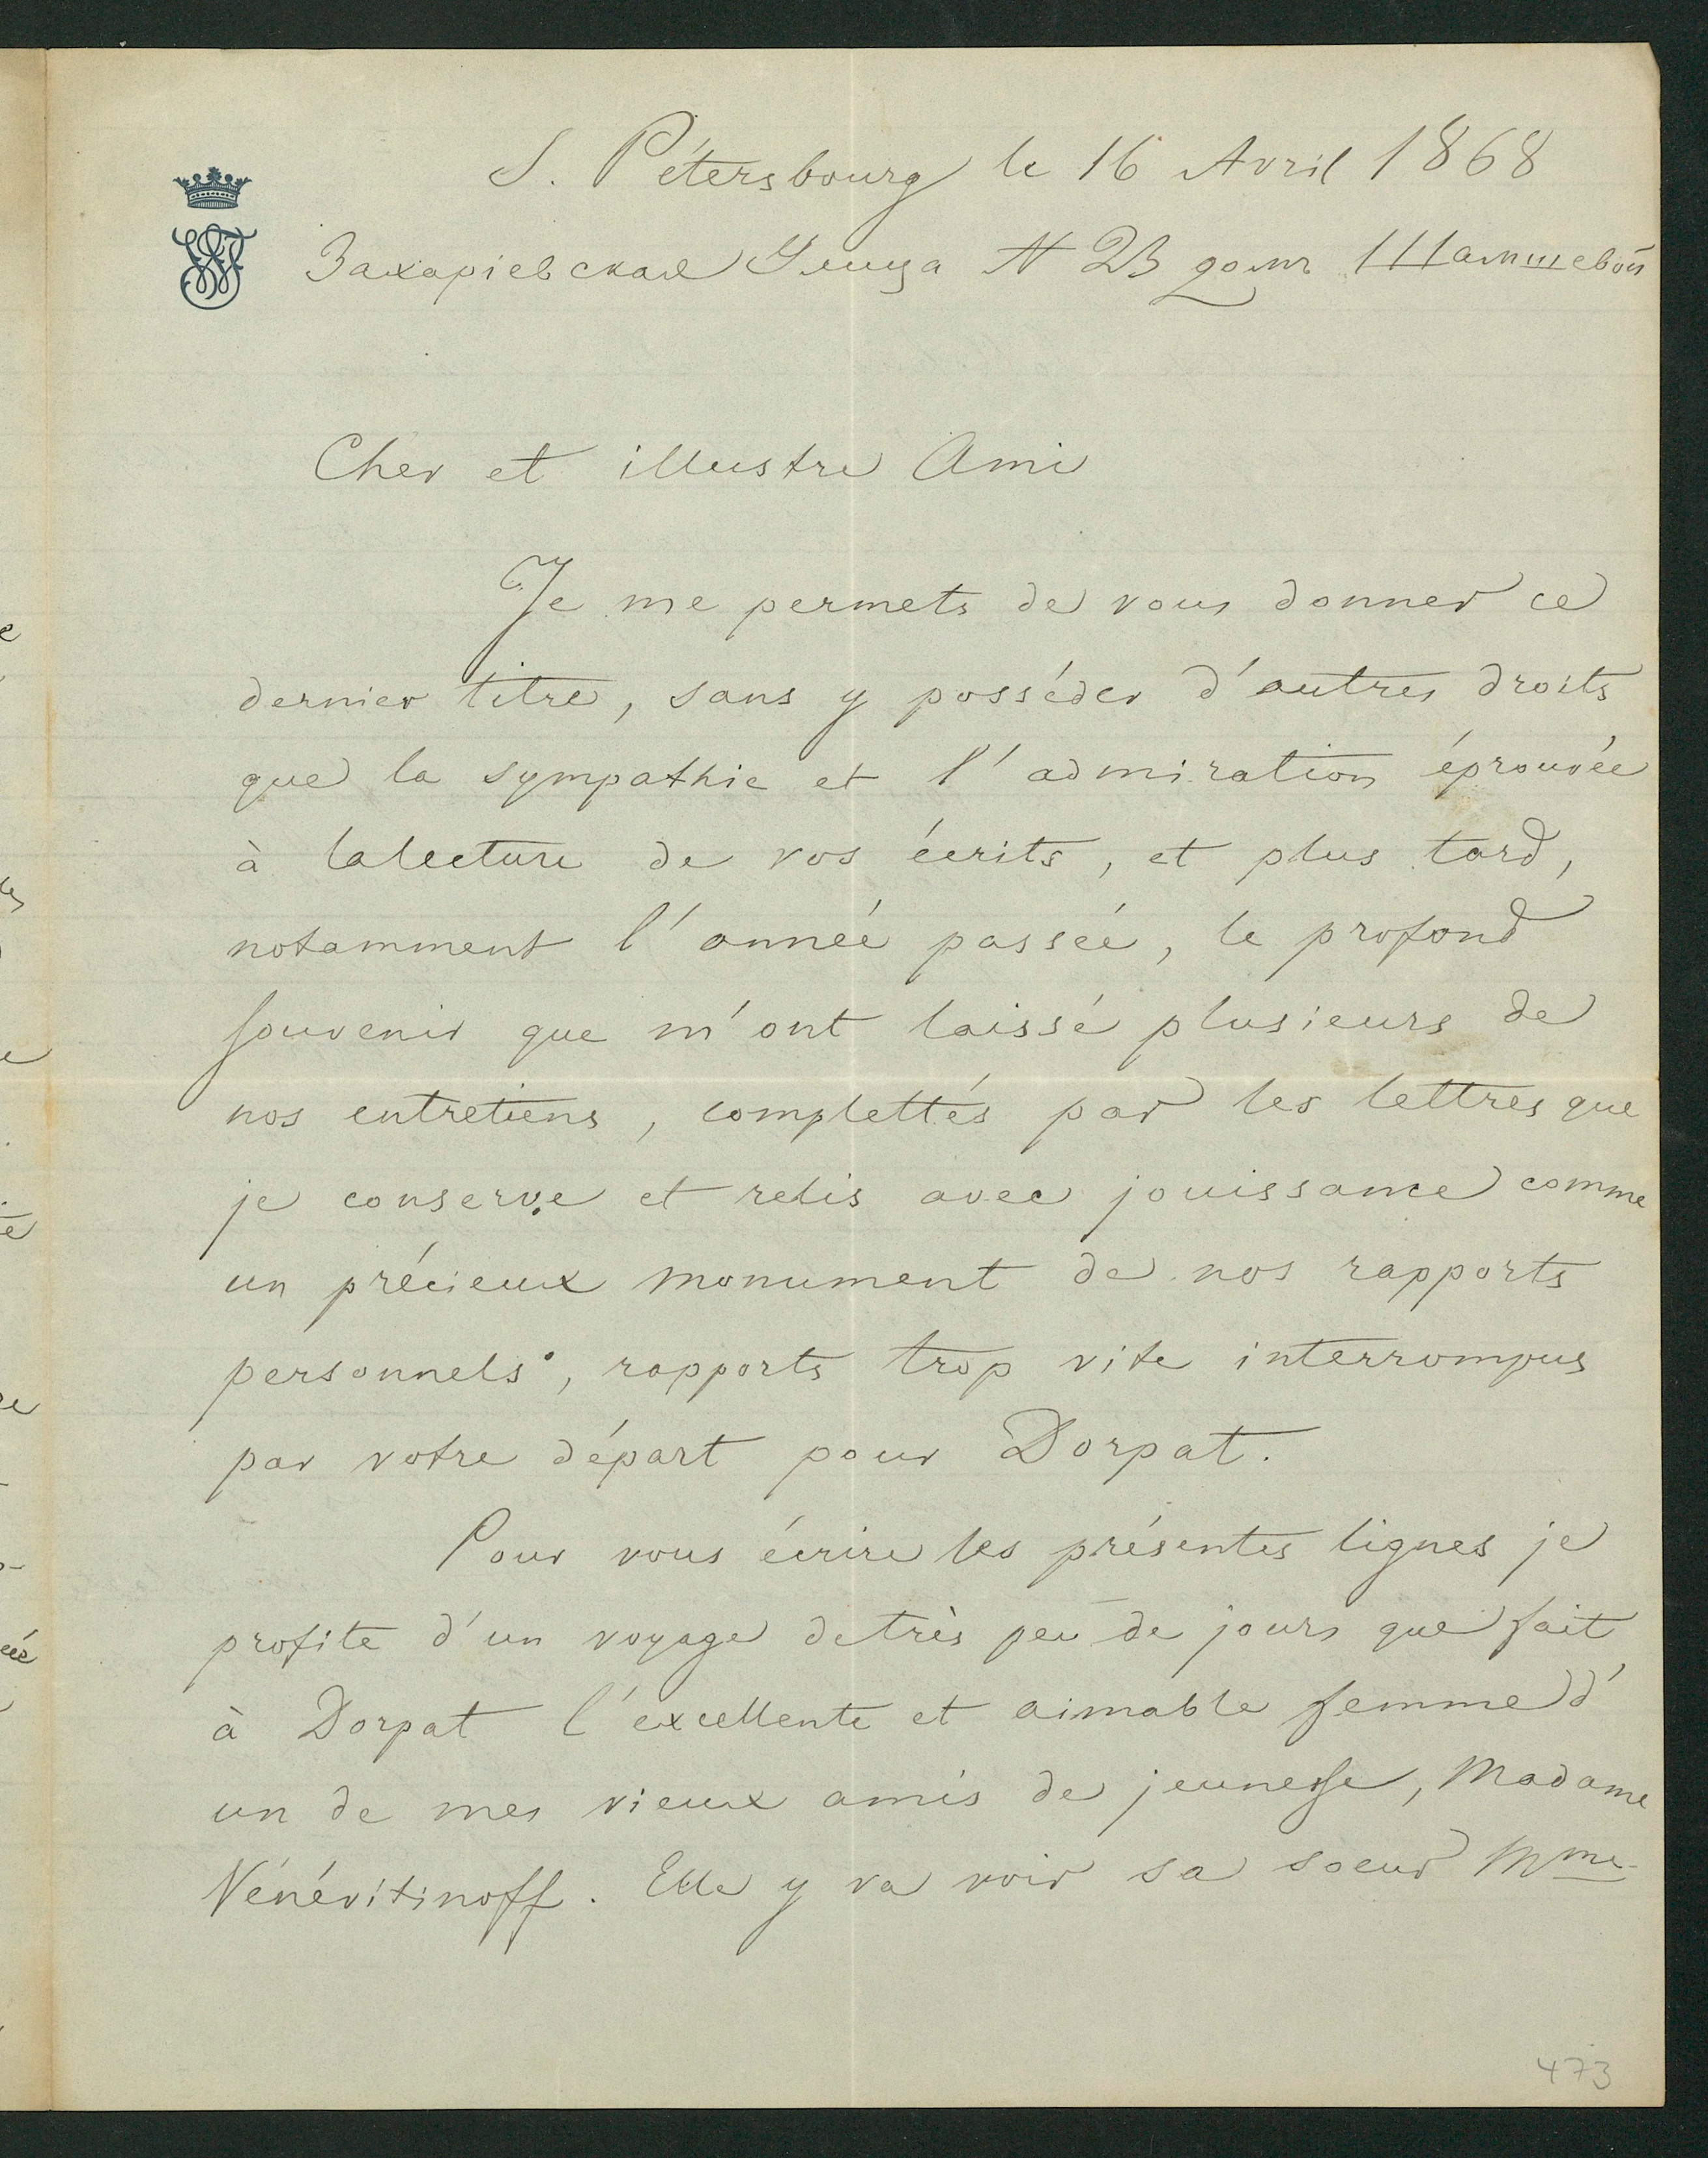 S. Pétersbourg le 16 Avril 1868
Захарiевская Улица N 23 домъ
Cher et illustre Ami
Je me permets de vous donner ce
dernier titre, sans y posséder d'autres droits
que la sympathie et l'admiration éprouvée
à lalecture de vos écrits, et plus tard,
notamment l'année passée, le profond
souvenir que m'ont laissé plusieurs de
nos entretiens, complettés par les lettres que
je conserve et relis avec jouissance comme
un précieux monument de nos rapports
personnels, rapports trop vite interrompus
par votre départ pour Dorpat.
Pour vous écrire les présentes lignes je
profite d'un voyage de très peu de jours que fait
à Dorpat l'excellente et aimable femme d'
un de mes vieux amis de jeunesse, Madame
Vénévitinoff. Elle y va voir sa soeur Mme
473